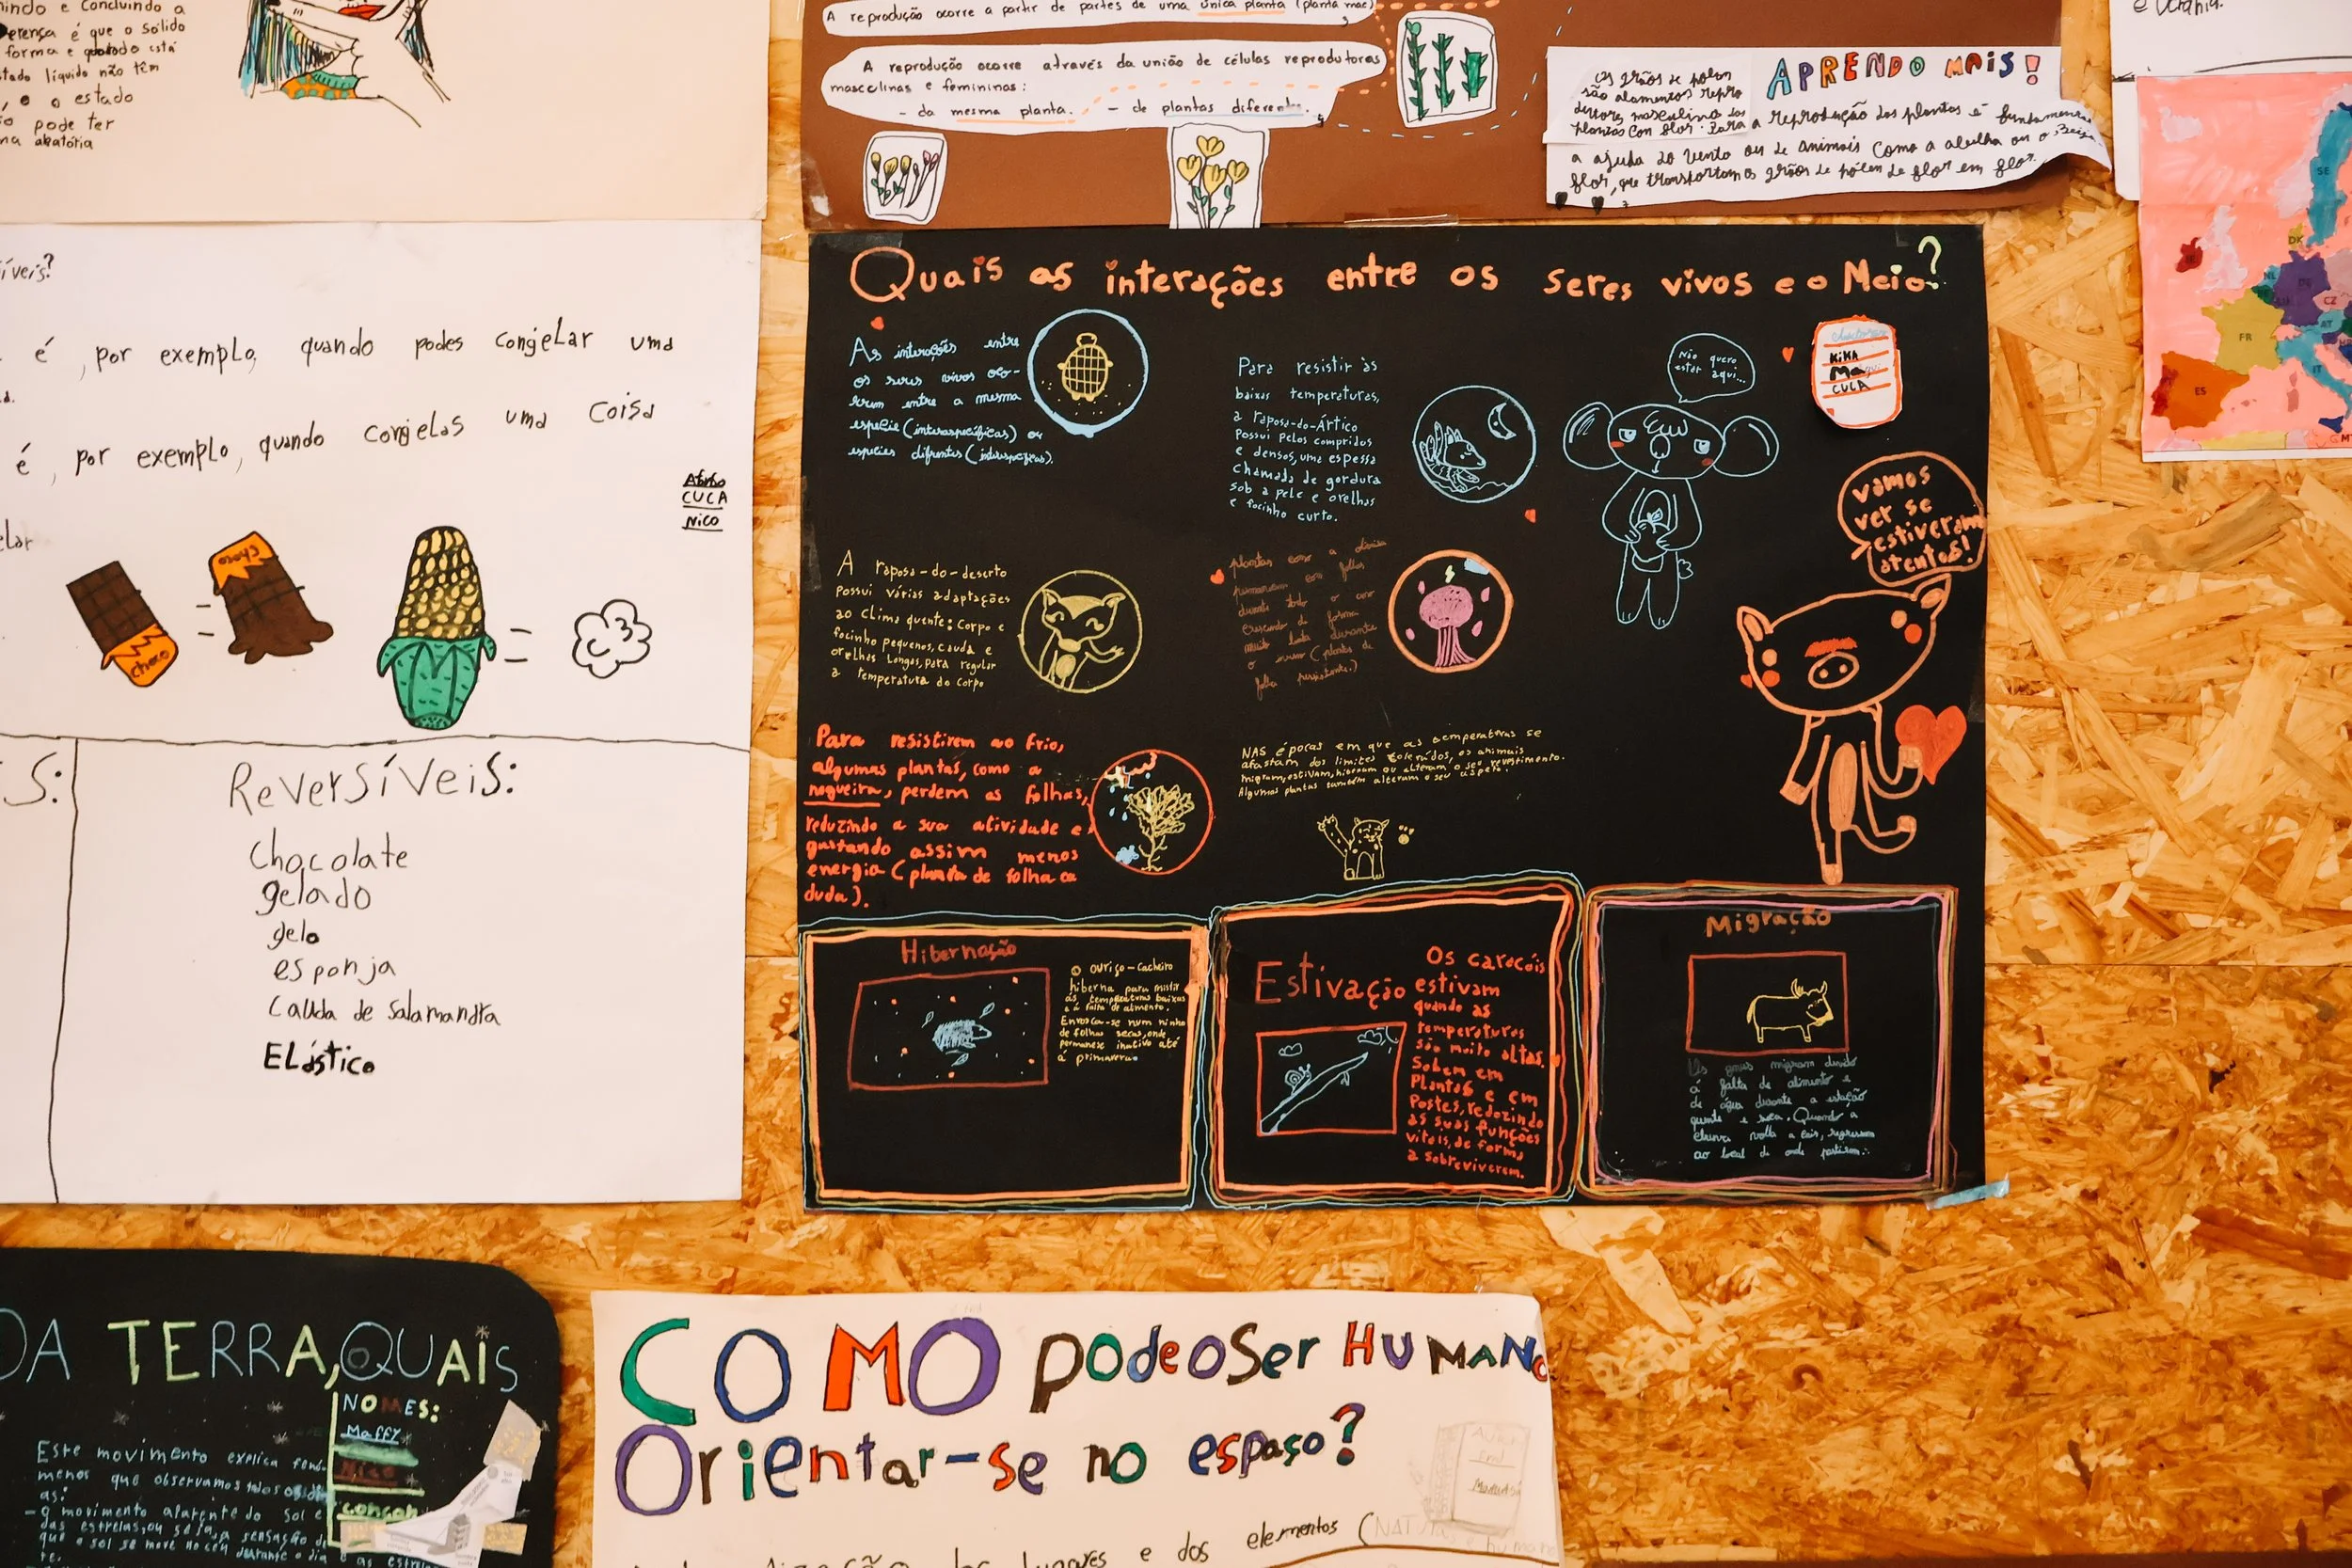 indo e concluindo a
erença é que o sólido
forma e quando está
tado líquido não têm
, e o estado
o pode ter
ma aleatória
A reprodução ocorre a partir de partes de uma única planta (planta mãe)
A reprodução ocorre através da união de células reprodutoras
masculinas e femininas:
- da mesma planta. - de plantas diferentes.
APRENDO MAIS!
Os grãos de pólen
são alamentos repro
dutores masculinos das
plantas con flor. Para a reprodução das plantas é fundamental
a ajuda do vento ou de animais como a abelha ou o Beija
flor, que transportam os grãos de pólen de flor em flor.
e Ucrânia.
SE
DK
IE
NL
DE
CZ
FR
AT
IT
ES
íveis?
é, por exemplo, quando podes congelar uma
é, por exemplo, quando congelas uma coisa
elar
Afonso
CUCA
Nico
choco
choco
=
=
S:
Reversíveis:
Chocolate
gelado
gelo
esponja
Cauda de salamandra
ELástico
Quais as interações entre os seres vivos e o Meio?
As interações entre
os seres vivos oco-
rrem entre a mesma
espécie (intraespecíficas) ou
espécies difrentes (interespecíficas).
Para resistir às
baixas temperaturas,
a raposa-do-Ártico
possui pelos compridos
e densos, uma espessa
chamada de gordura
sob a pele e orelhas
e focinho curto.
Não quero
estar aqui...
KIKA
CUCA
vamos
ver se
estiveram
atentos!
A raposa-do-deserto
possui várias adaptações
ao clima quente: corpo e
focinho pequenos, cauda e
orelhas longas, para regular
a temperatura do corpo
plantas como a
permanecem com folhas
durante todo o ano
crescendo de forma
muito lenta durante
o (plantas de
folha persistente.)
Para resistirem ao frio,
algumas plantas, como a
nogueira, perdem as folhas,
reduzindo a sua atividade e
gastando assim menos
energia (planta de folha ca
duda).
NAS épocas em que as temperaturas se
afastam dos limites tolerados, os animais
migram, estivam, hibernam ou alteram o seu revestimento.
Algumas plantas também alteram o seu aspeto.
Hibernação
O ouriço-cacheiro
hiberna para resistir
às temperaturas baixas
e à falta de alimento.
Enrosca-se num ninho
de folhas secas, onde
permanece inativo até
á primavera
Estivação
Os caracóis
estivam
quando as
temperaturas
são muito altas.
Sobem em
Plantas e em
Postes, reduzindo
as suas funções
vitais, de forma
a sobreviverem.
Migração
Os gnus migram devido
á falta de alimento e
de água durante a estação
quente e seca. Quando a
chuva volta a cair, regressam
ao local de onde partiram.
DA TERRA, QUAIS
NOMES:
Maffy
Nico
Este movimento explica fenó-
menos que observamos todos os di
as:
- o movimento aparente do Sol e
das estrelas, ou seja, a sensação de
que o sol se move no céu durante o dia e as estre
COMO podeoSer HUMANO
Orientar-se no espaço?
lugares e dos elementos (NAT